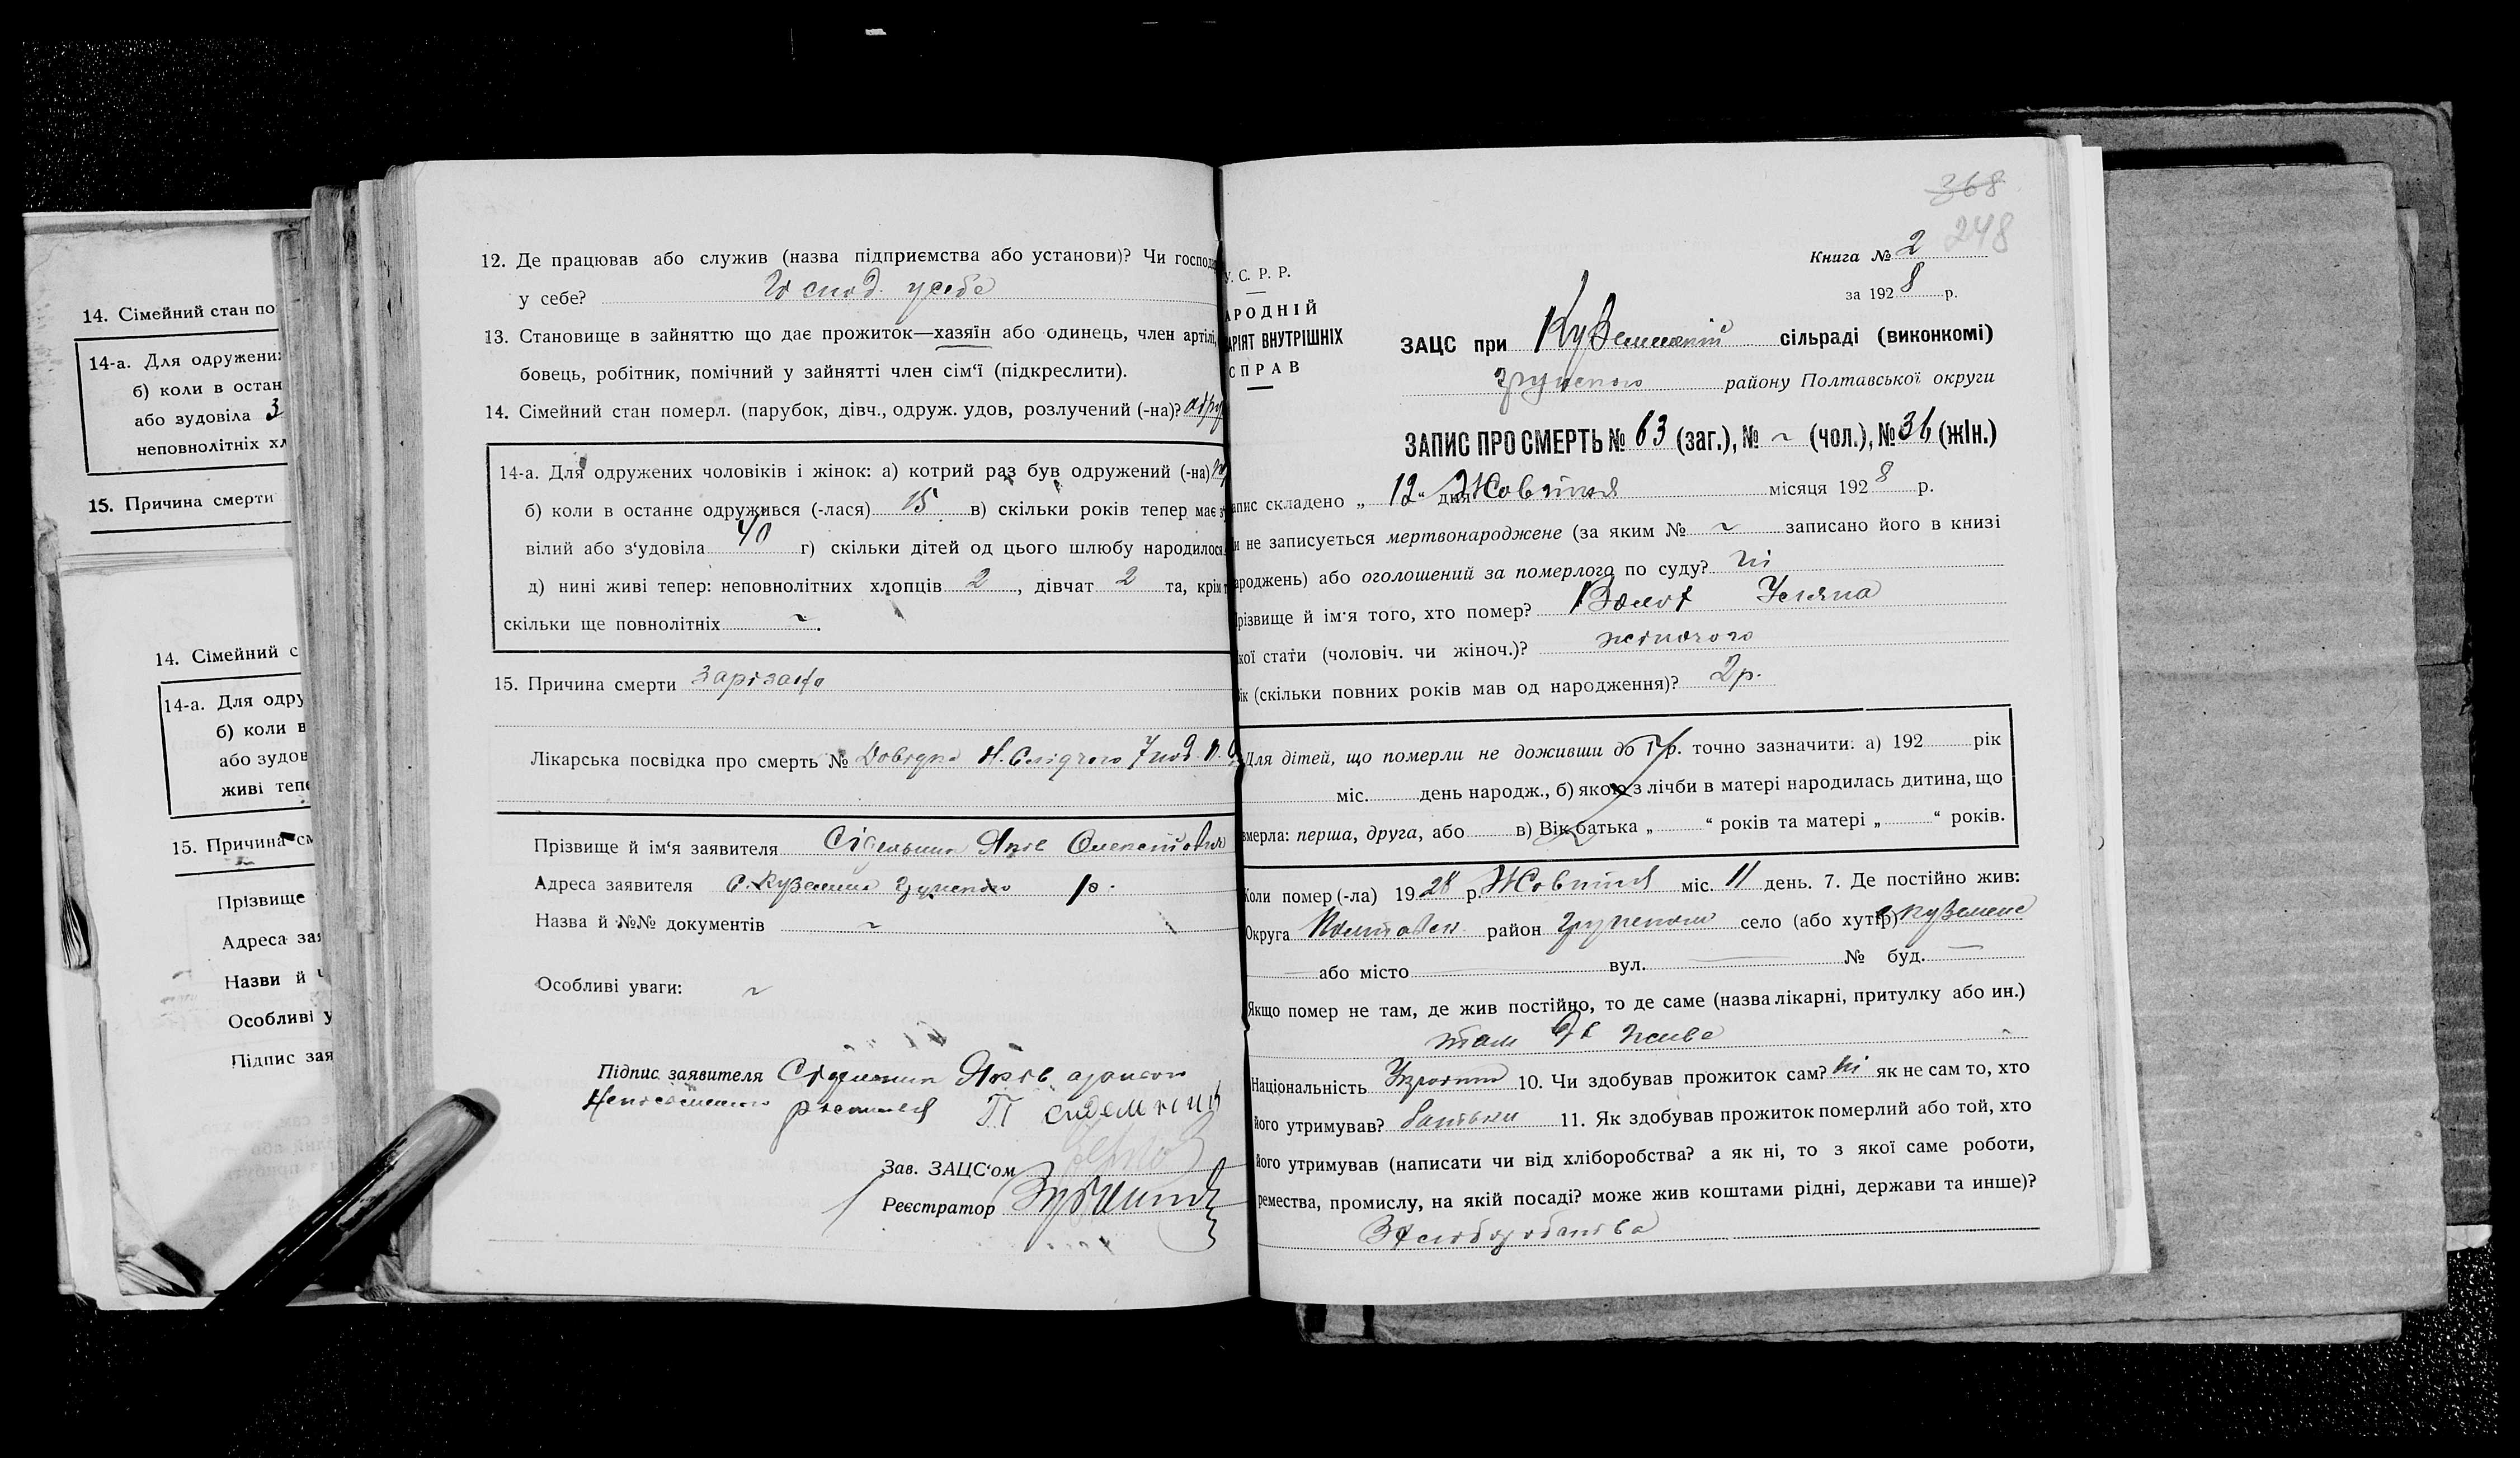 14. Сімейний стан по
14-а. Для одружених
б) коли в остан
або зудовіла 3
неповнолітніх хл
15. Причина смерти
14. Сімейний с
14-а. Для одру
б) коли в
або зудов
живі тепе
15. Причина см
Прізвище
Адреса зая
Назви й
Особливі у
Підпис зая
12. Де працював або служив (назва підприємства або установи)? Чи господ
у себе? Господ. у себе
13. Становище в зайняттю що дає прожиток—хазяїн або одинець, член артілі,
бовець, робітник, помічний у зайнятті член сім'ї (підкреслити).
14. Сімейний стан померл. (парубок, дівч., одруж. удов, розлучений (-на)? одру
14-а. Для одружених чоловіків і жінок: а) котрий раз був одружений (-на)
б) коли в останнє одружився (-лася) 15 в) скільки років тепер має з
вілий або з'удовіла 40 г) скільки дітей од цього шлюбу народилося
д) нині живі тепер: неповнолітних хлопців 2, дівчат 2 та, крім т
скільки ще повнолітніх ~.
15. Причина смерти зарізано
Лікарська посвідка про смерть № Довідка
Прізвище й ім'я заявителя Сідельник Яків Олексійович
Адреса заявителя с. Куземин Грунского р.
Назва й №№ документів ~
Особливі уваги: ~
Підпис заявителя Сідельник Яків
Неписьменного росписався П Сидельник
Зав. ЗАЦС'ом
Реєстратор
368
248
Книга № 2
за 1928 р.
У. С. Р. Р.
АРОДНІЙ
АРІЯТ ВНУТРІШНІХ
СПРАВ
ЗАЦС при Куземинській сільраді (виконкомі)
Грунского району Полтавської округи
ЗАПИС ПРО СМЕРТЬ № 63 (заг.), № ~ (чол.), № 36 (жін.)
апис складено „12" дня Жовтня місяця 1928 р.
и не записується мертвонароджене (за яким № ~ записано його в книзі
ароджень) або оголошений за померлого по суду? ні
різвище й ім'я того, хто помер? Уляна
кої стати (чоловіч. чи жіноч.)? жіночого
ік (скільки повних років мав од народження)? 2 р.
Для дітей, що померли не доживши до 1 р. точно зазначити: а) 192 рік
міс. день народж., б) якою з лічби в матері народилась дитина, що
вмерла: перша, друга, або в) Вік батька „ " років та матері „ " років.
Коли помер (-ла) 1928 р. Жовтня міс. 11 день. 7. Де постійно жив:
Округа Полтавськ район Грунском село (або хутір) с. Куземене
або місто вул. № буд.
Якщо помер не там, де жив постійно, то де саме (назва лікарні, притулку або ин.)
там де живе
Національність України 10. Чи здобував прожиток сам? ні як не сам то, хто
його утримував? батьки 11. Як здобував прожиток померлий або той, хто
його утримував (написати чи від хліборобства? а як ні, то з якої саме роботи,
ремества, промислу, на якій посаді? може жив коштами рідні, держави та инше)?
З хліборобства